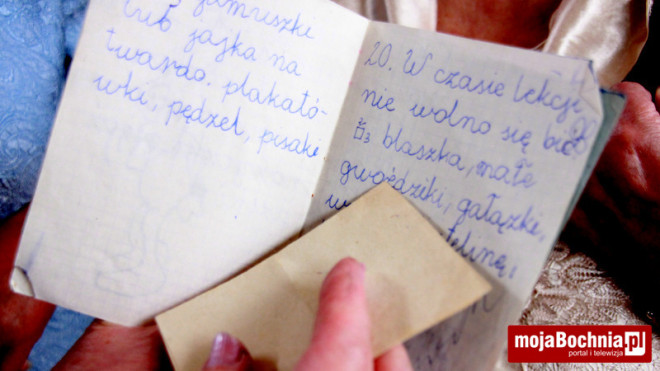 lub jajka na
twardo. plakató-
wki, pędzel, pisake
20. W czasie lekcji
nie wolno się bić
blaszka, małe
gwoździki, gałązki,
mojaBochnia.pl
portal i telewizja